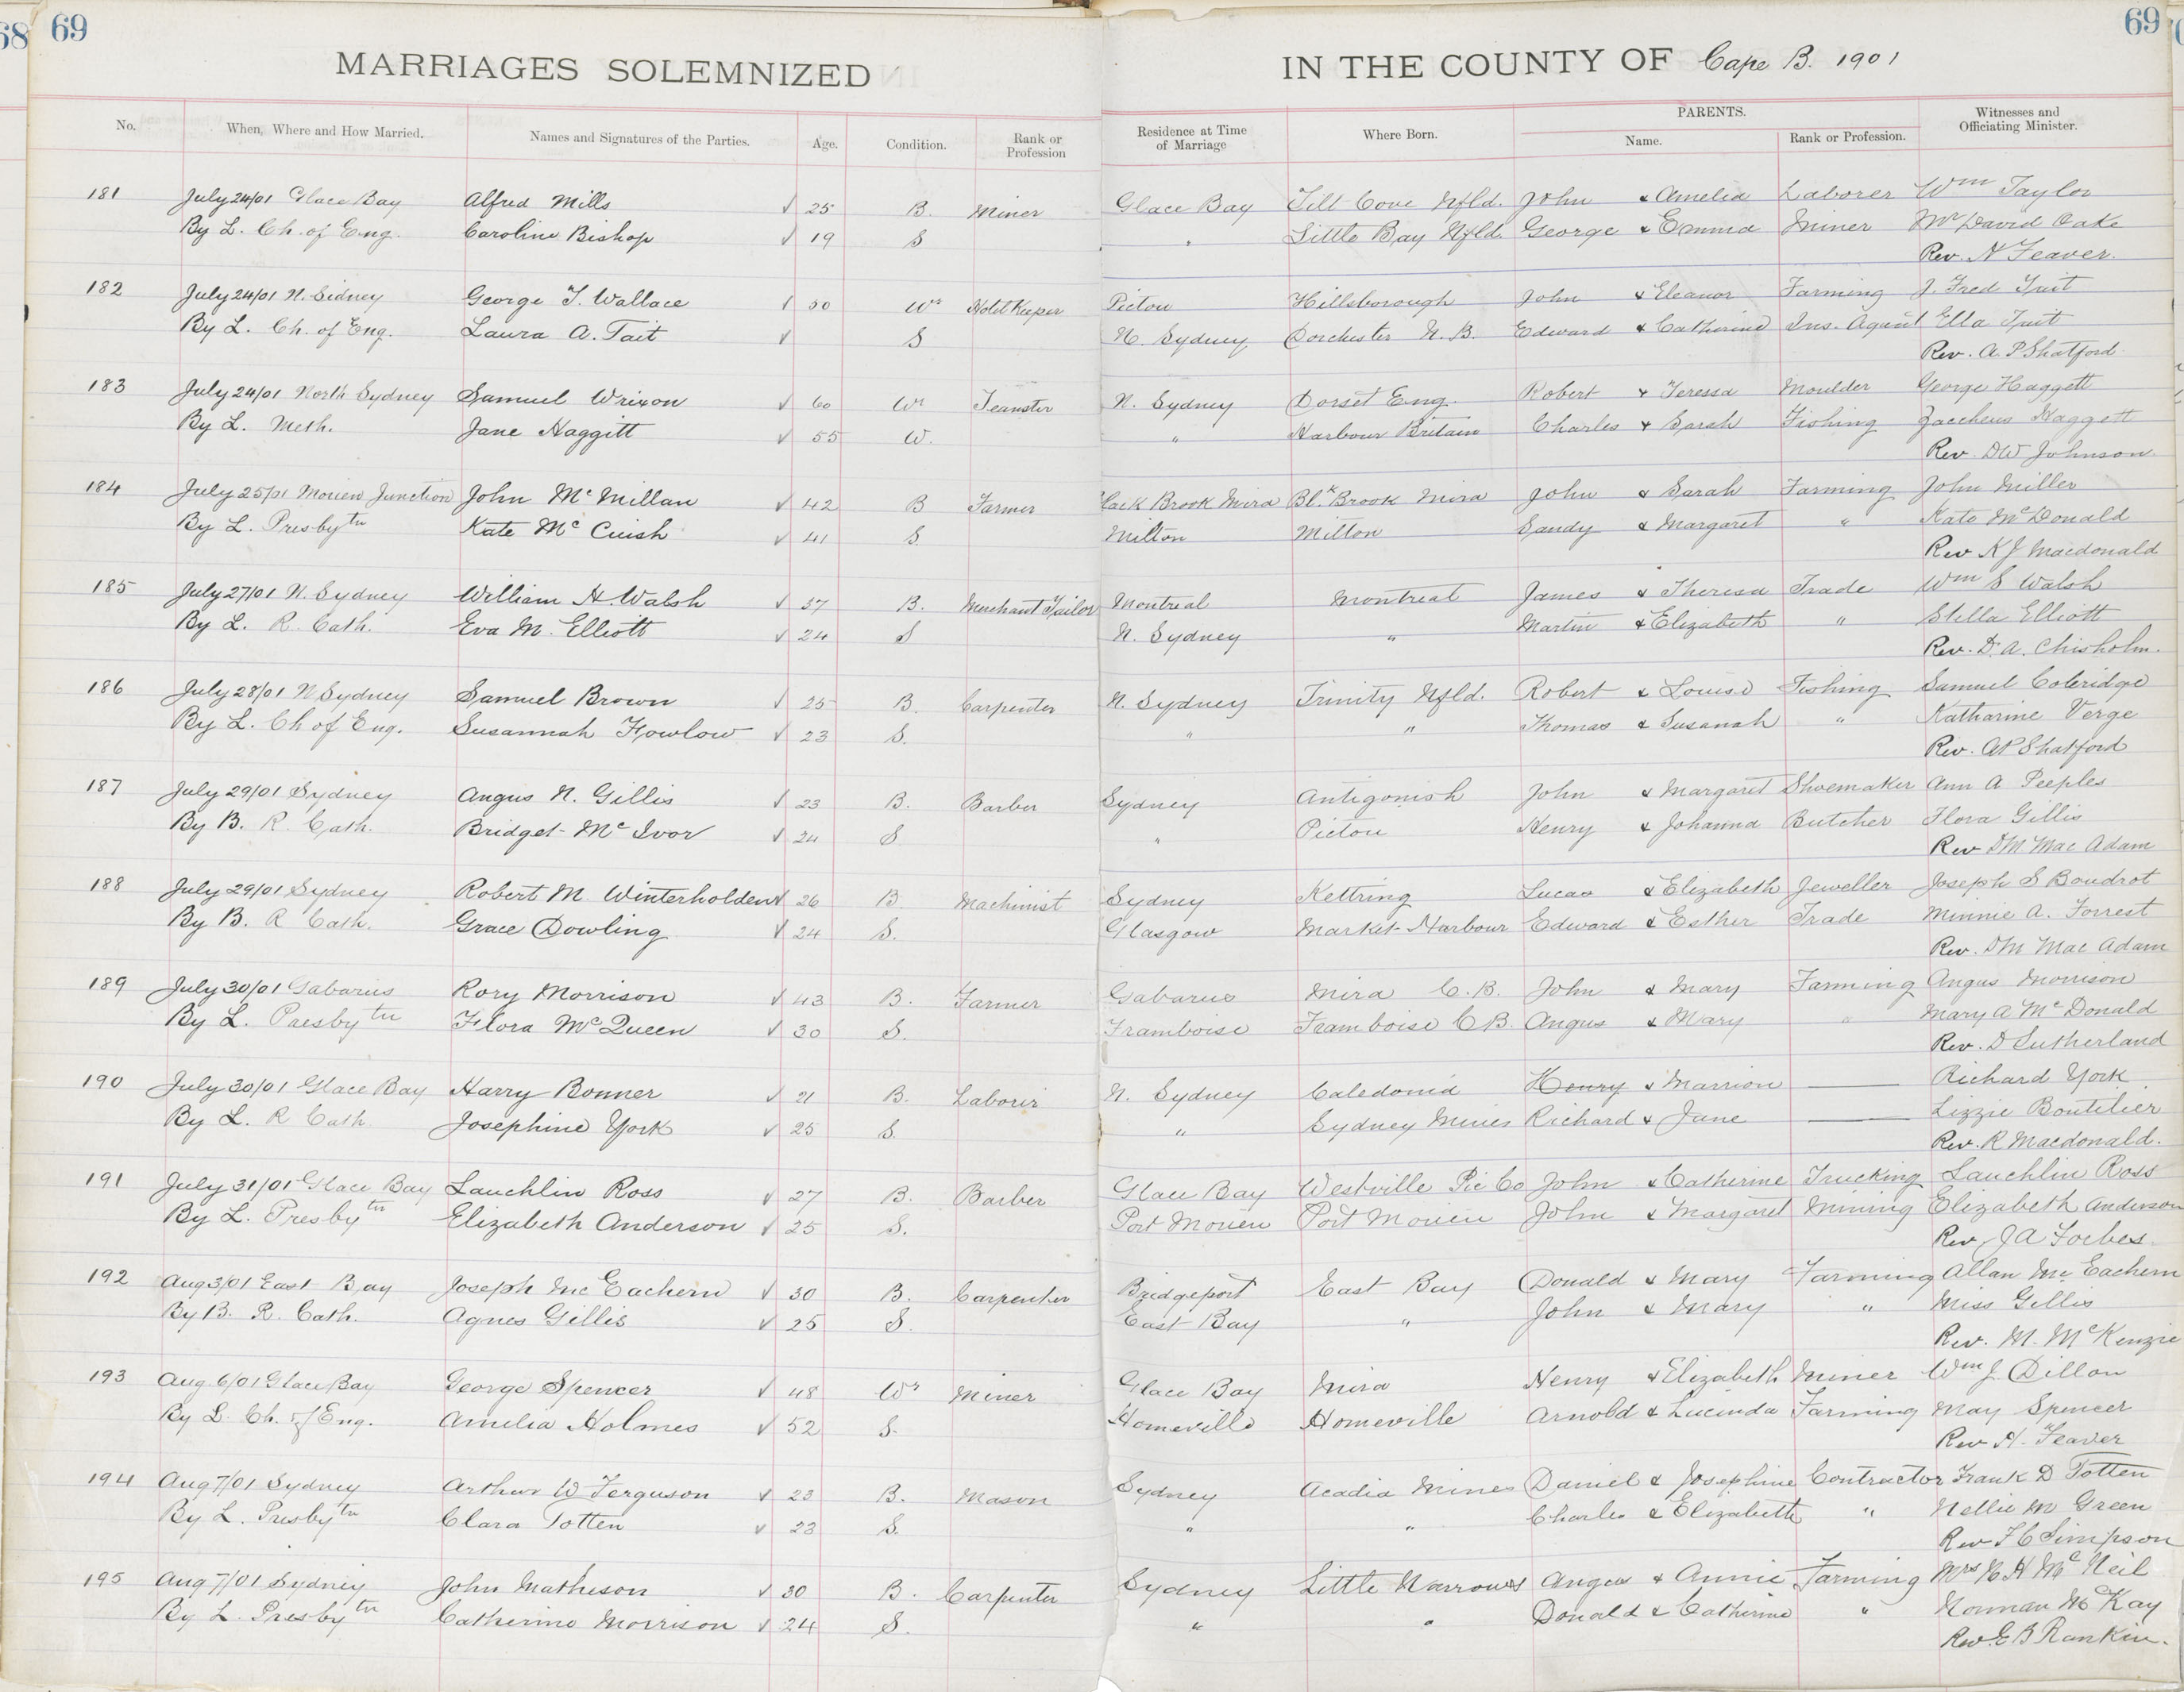 68 69 69
MARRIAGES SOLEMNIZED IN THE COUNTY OF Cape B. 1901
No. When, Where and How Married. Names and Signatures of the Parties. Age. Condition. Rank or Profession Residence at Time of Marriage Where Born. PARENTS. Name. Rank or Profession. Witnesses and Officiating Minister.
181 July 24/01 Glace Bay Alfred Mills √ 25 B. Miner Glace Bay Tilt Cove Nfld. John & Amelia Laborer Wm Taylor
By L. Ch. of Eng. Caroline Bishop √ 19 S " Little Bay Nfld. George & Emma Miner David Oake
Rev. H Feaver.
182 July 24/01 N. Sidney George T. Wallace √ Wr Hotel Keeper Pictou Hillsborough John & Eleanor Farming J. Fred Tait
By L. Ch. of Eng. Laura A. Tait √ S N. Sydney Dorchester N. B. Edward & Catherine Ins. Agent Ella Tait
Rev. A. P Shatford
183 July 24/01 North Sydney Samuel Wrixon √ 60 Wr Teamster N. Sydney Dorset Eng. Robert & Teressa Moulder George Haggett
By L. Meth. Jane Haggitt √ 55 W. " Harbour Britain Charles & Sarah Fishing Zaccheus Haggett
Rev. DW Johnson
184 July 25/01 Morien Junction John Mc Millan √ 42 B Farmer Black Brook Mira Blk Brook Mira John & Sarah Farming John Miller
By L. Presbytn Kate Mc Cuish √ 41 S. Milton Milton Sandy & Margaret " Kate McDonald
Rev K J Macdonald
185 July 27/01 N. Sydney William H. Walsh √ 37 B. Merchant Tailor Montreal Montreal James & Theresa Trade Wm S Walsh
By L. R. Cath. Eva M. Elliott √ 24 S N. Sydney " Martin & Elizabeth " Stella Elliott
Rev. D. A. Chisholm.
186 July 28/01 N Sydney Samuel Brown √ 25 B. Carpenter N. Sydney Trinity Nfld. Robert & Louise Fishing Samuel Coleridge
By L. Ch of Eng. Susannah Fowlow √ 23 S. " " Thomas & Susanah " Katharine Verge
Rev. AP Shatford
187 July 29/01 Sydney Angus N. Gillis √ 23 B. Barber Sydney Antigonish John & Margaret Shoemaker Ann A Peeples
By B. R. Cath. Bridget Mc Ivor √ 24 S " Pictou Henry & Johanna Butcher Flora Gillis
Rev DM Mac Adam
188 July 29/01 Sydney Robert M. Winterholden √ 26 B. Machinist Sydney Kettring Lucas & Elizabeth Jeweller Joseph S Boudrot
By B. R Cath. Grace Dowling √ 24 S. Glasgow Market Harbour Edward & Esther Trade Minnie A. Forrest
Rev. DM Mac Adam
189 July 30/01 Gabarus Rory Morrison √ 43 B. Farmer Gabarus Mira C. B. John & Mary Farming Angus Morrison
By L. Presbytn Flora McQueen √ 30 S. Framboise Framboise C B. Angus & Mary " Mary A McDonald
Rev. D Sutherland
190 July 30/01 Glace Bay Harry Bonner √ 21 B. Laborer N. Sydney Caledonia Henry & Marrion — Richard York
By L. R Cath Josephine York √ 25 S. " Sydney Mines Richard & Jane — Lizzie Boutilier
Rev. R Macdonald.
191 July 31/01 Glace Bay Lauchlin Ross √ 27 B. Barber Glace Bay Westville Pic Co John & Catherine Trucking Lauchlin Ross
By L. Presbytn Elizabeth Anderson √ 25 S. Port Morien Port Morien John & Margaret Mining Elizabeth Anderson
Rev. J A Forbes.
192 Aug 3/01 East Bay Joseph Mc Eachern √ 30 B. Carpenter Bridgeport East Bay Donald & Mary Farming Allan Mc Eachern
By B. R. Cath. Agnes Gillis √ 25 S. East Bay " John & Mary " Miss Gillis
Rev. M. McKenzie
193 Aug 6/01 Glace Bay George Spencer √ 48 Wr Miner Glace Bay Mira Henry & Elizabeth Miner Wm J. Dillon
By L. Ch. of Eng. Amelia Holmes √ 52 S. Homeville Homeville Arnold & Lucinda Farming May Spencer
Rev H. Feaver
194 Aug 7/01 Sydney Arthur W Ferguson √ 23 B. Mason Sydney Acadia Mines Daniel & Josephine Contractor Frank D Totten
By L. Presbytn Clara Totten √ 23 S. " " Charles & Elizabeth " Nellie M Green
Rev F C Simpson
195 Aug 7/01 Sydney John Matheson √ 30 B. Carpenter Sydney Little Narrows Angus & Annie Farming Mrs N H McNeil
By L. Presbytn Catherine Morrison √ 24 S. " " Donald & Catherine " Norman McKay
Rev. E B Rankin.